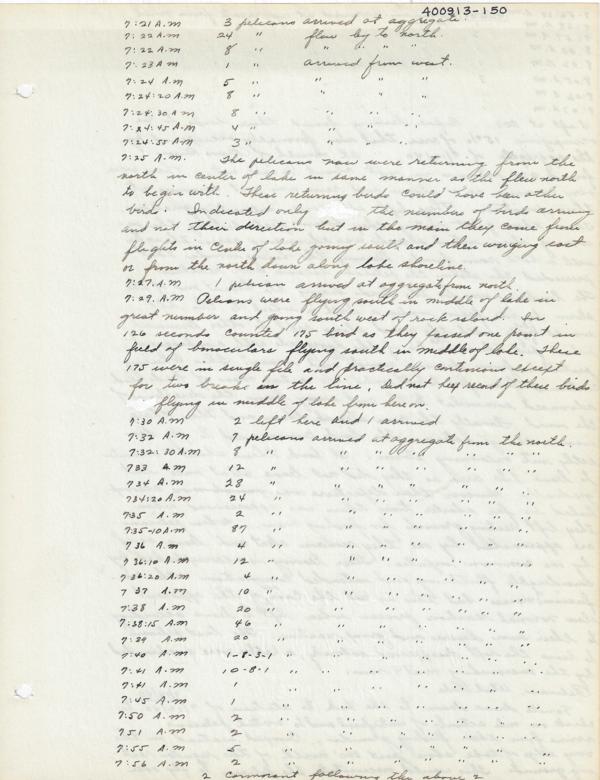 400913-150
7:21 A.M 3 pelicans arrived at aggregate.
7:22 A.M 24 " flew by to north.
7:22 A.M 8 " " " " "
7:23 A.M 1 " arrived from west.
7:24 A.M 5 " " " "
7:24:20 A.M 8 " " " "
7:24:30 A.M 8 " " " "
7:24:45 A.M 4 " " " "
7:24:55 A.M 3 " " " "
7:25 A.M. The pelicans now were returning from the
north in center of lake in same manner as the flew north
to begin with. These returning birds could have been other
birds. Indicated only the number of birds arriving
and not their direction but in the main they come from
flights in center of lake going south and then verging east
or from the north down along lake shoreline.
7:27 A.M 1 pelican arrived at aggregate from north.
7:29 A.M Pelicans were flying south in middle of lake in
great number and going south west of rock island. In
126 seconds counted 175 bird as they passed one point in
field of binoculars flying south in middle of lake. These
175 were in single file and practically continous except
for two breaks in the line. Did not keep record of these birds
flying in middle of lake from here on.
7:30 A.M 2 left here and 1 arrived
7:32 A.M 7 pelicans arrived at aggregate from the north.
7:32:30 A.M 8 " " " " " " "
733 A.M 12 " " " " " " "
734 A.M 28 " " " " " " "
734:20 A.M 24 " " " " " " "
735 A.M 2 " " " " " " "
7:35-10 A.M 87 " " " " " " "
736 A.M 4 " " " " " " "
736:10 A.M 12 " " " " " " "
736:20 A.M 4 " " " " " " "
737 A.M 10 " " " " " " "
7:38 A.M 20 " " " " " " "
7:38:15 A.M 46 " " " " " " "
7:39 A.M 20 " " " " " " "
7:40 A.M 1-8-3-1 " " " " " " "
7:41 A.M 10-8-1 " " " " " "
7:41 A.M 1 " " " " " "
7:45 A.M 1 " " " " " "
7:50 A.M 2 " " " " " "
751 A.M 2 " " " " " "
7:55 A.M 5 " " " " " "
7:56 A.M 2 " " " " " "
2 Cormorant following the above 2